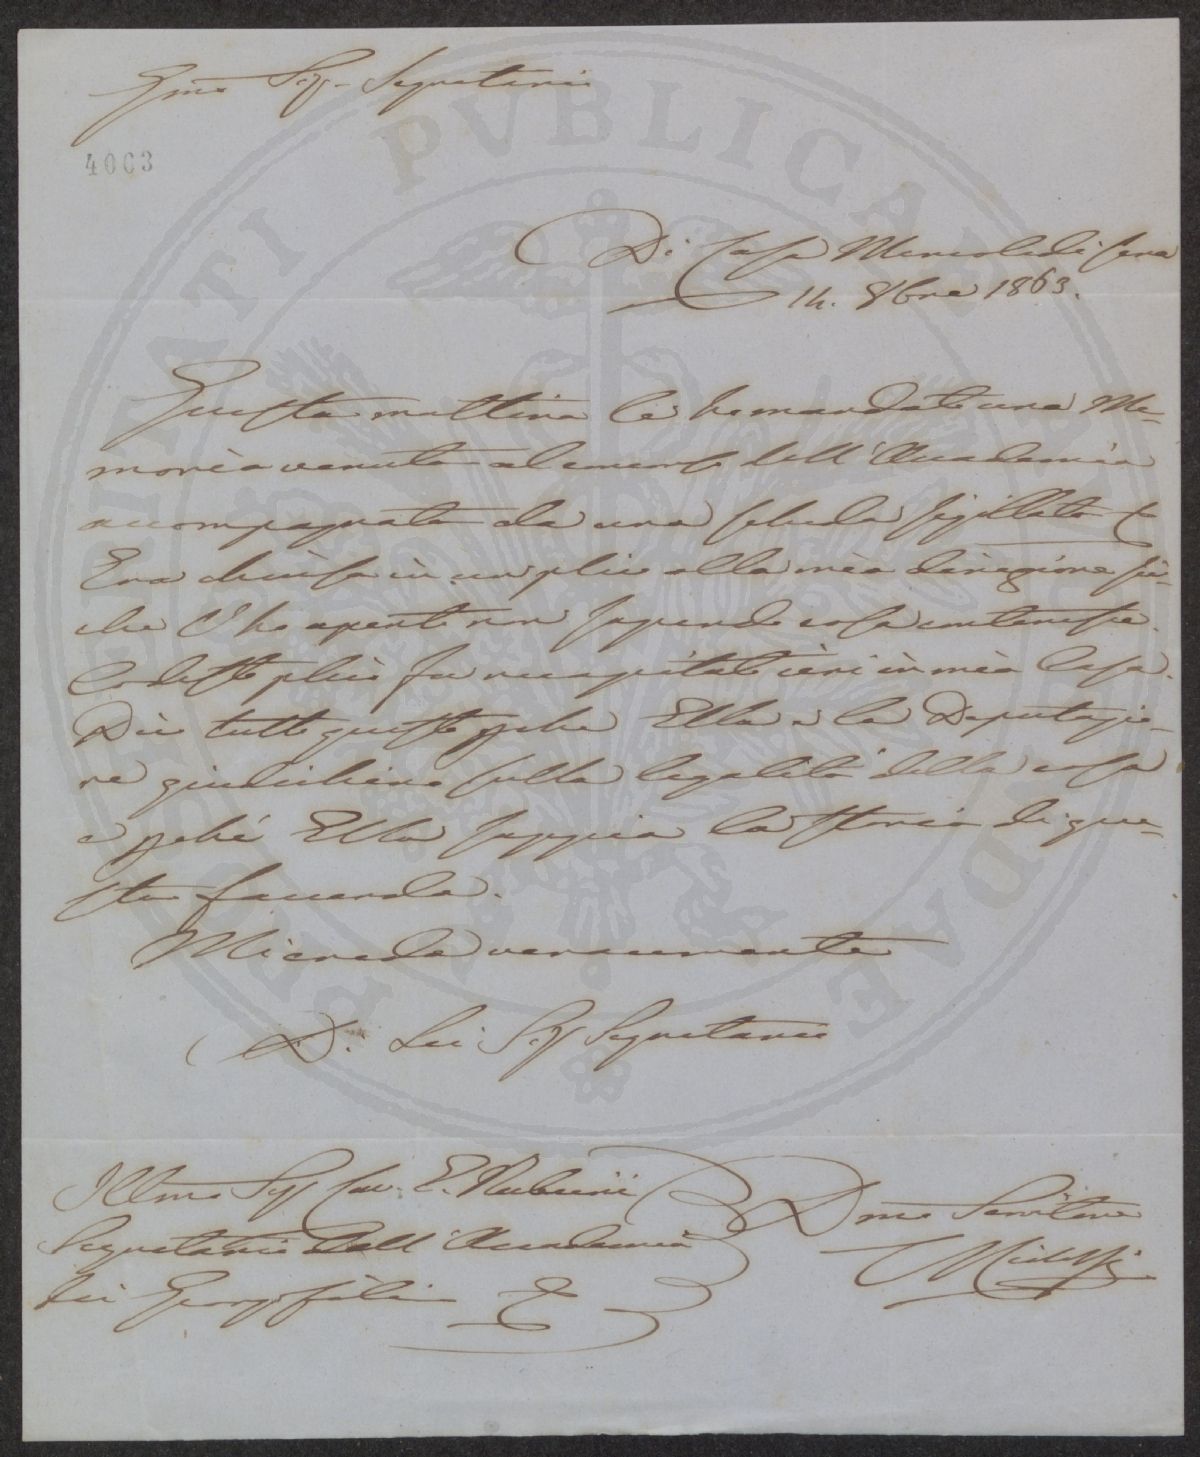 Gmo Sigr Segretario
4003
Di Casa Mercoledi sera
14. 8bre 1863.
Questa mattina Le ho mandato una Me-
moria venuta al concorso dell'Accademia
accompagnata da una scheda sigillata &
Era chiusa in un plico alla mia direzione sic-
che l'ho aperto non sapendo cosa contenesse.
Codesto plico fu recapitato ieri in mia Casa.
Dico tutto questo pche Ella e la Deputazio-
ne giudichino sulla legalità della cosa
e pché Ella sappia la storia di que-
sta faccenda.
Mi creda veracemente
Di Lei Sigr Segretario
Illmo Sigr Cav. E. Rubieri
Segretario dell'Accademia
dei Georgofili
Dmo Servitore
PUBLICAE
PROSPERITATI
AUGENDAE